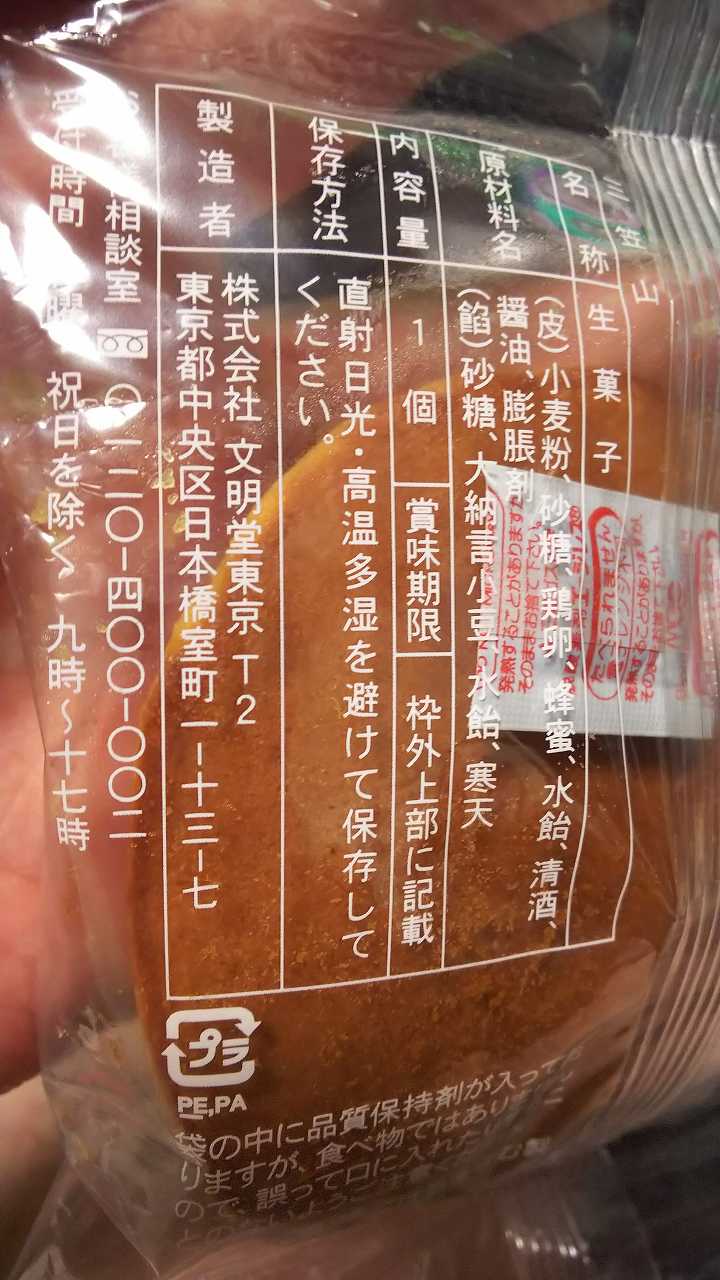 三笠山
名称 生菓子
原材料名 (皮)小麦粉、砂糖、鶏卵、蜂蜜、水飴、清酒、
醤油、膨脹剤
(餡)砂糖、大納言小豆、水飴、寒天
内容量 1個 賞味期限 枠外上部に記載
保存方法 直射日光・高温多湿を避けて保存して
ください。
製造者 株式会社 文明堂東京 T2
東京都中央区日本橋室町一-十三-七
相談室 〇一二〇-四〇〇-〇〇二
受付時間 曜 祝日を除く 九時~十七時
プラ
PE,PA
袋の中に品質保持剤が入って
りますが、食べ物ではありま
ので、誤って口に入れた
たべられません
発熱することがあります